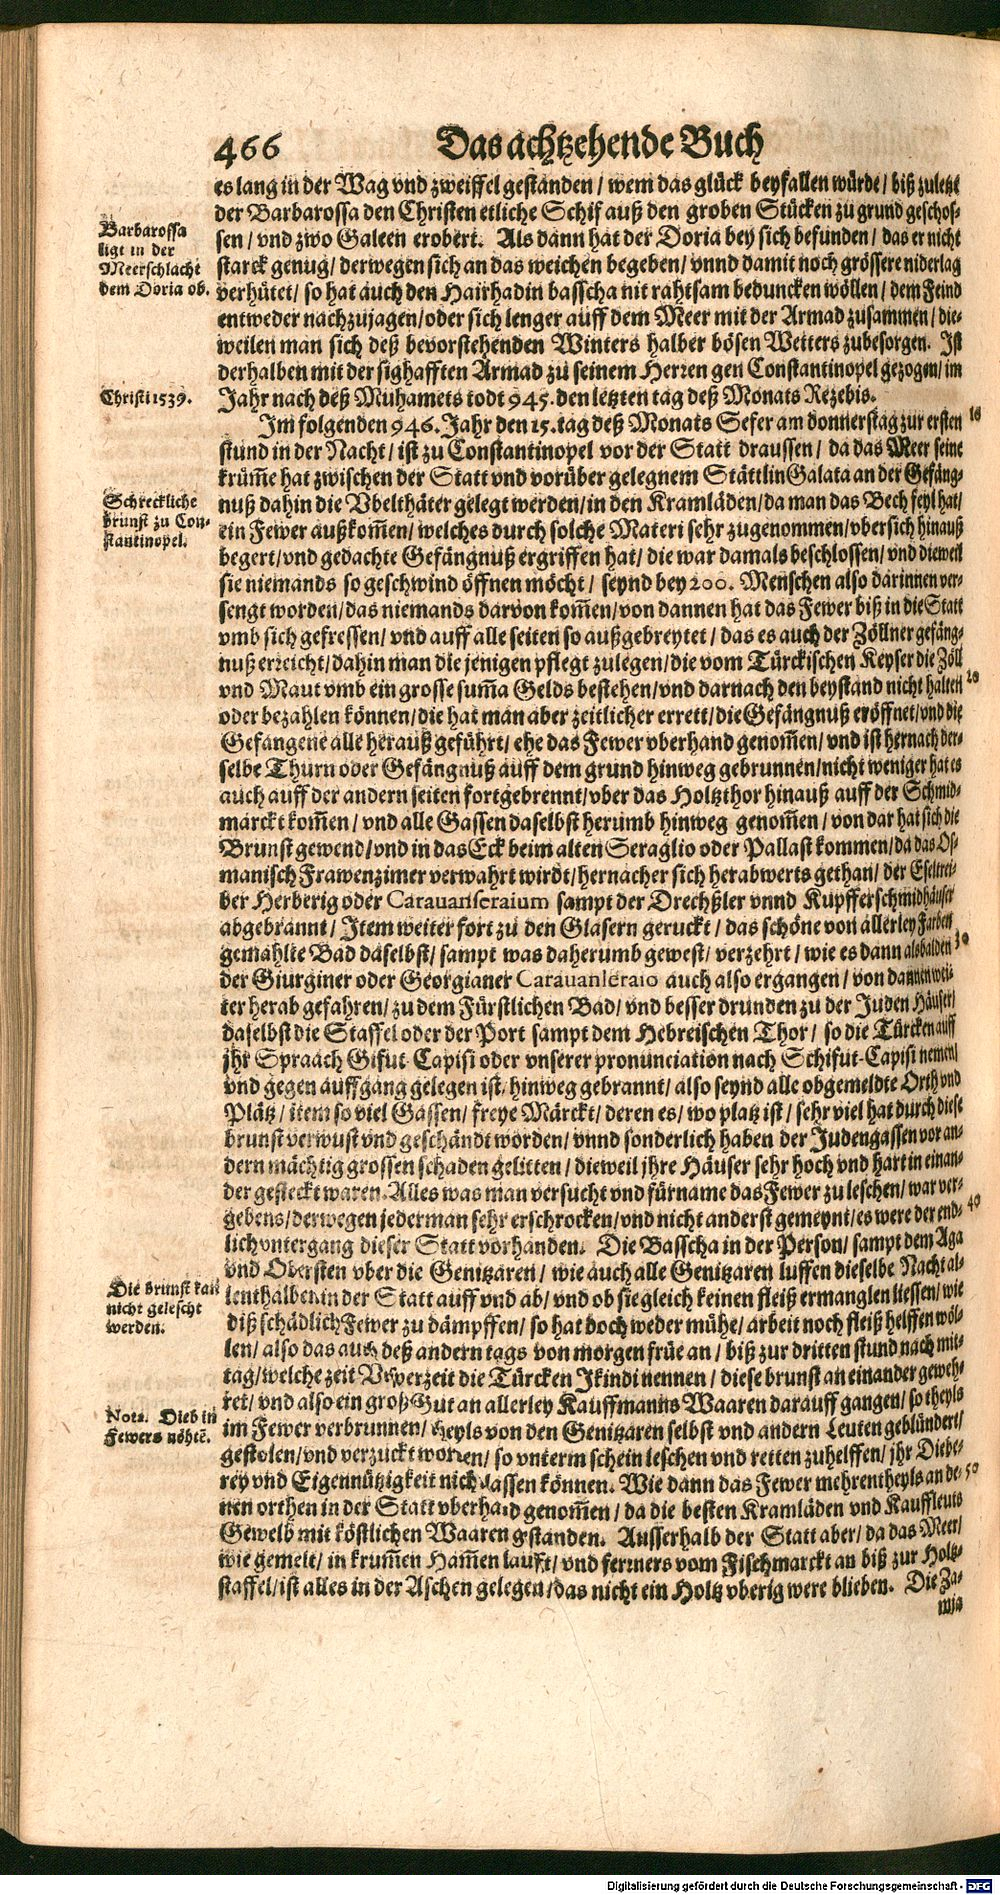 466
Das achtzehende Buch
es lang in der Wag vnd zweiffel gestanden / wem das glück beyfallen würde / biß zuletzt
der Barbarossa den Christen etliche Schif auß den groben Stücken zu grund geschos-
sen / vnd zwo Galeen erobert. Als dann hat der Doria bey sich befunden / das er nicht
starck genug / derwegen sich an das weichen begeben / vnnd damit noch grössere niderlag
verhütet / so hat auch den Hairhadin basscha nit rahtsam beduncken wöllen / dem Feind
entweder nachzujagen / oder sich lenger auff dem Meer mit der Armad zusammen / die-
weilen man sich deß bevorstehenden Winters halber bösen Wetters zubesorgen. Ist
derhalben mit der sighafften Armad zu seinem Herren gen Constantinopel gezogen / im
Jahr nach deß Muhamets todt 945. den letzten tag deß Monats Rezebis.
Barbarossa
ligt in der
Meerschlacht
dem Doria ob.
Christi 1539.
Im folgenden 946. Jahr den 15. tag deß Monats Sefer am donnerstag zur ersten
10
stund in der Nacht / ist zu Constantinopel vor der Statt draussen / da das Meer seine
krüm̃e hat zwischen der Statt vnd vorüber gelegnem Stättlin Galata an der Gefäng-
nuß dahin die Vbelthäter gelegt werden / in den Kramläden / da man das Bech feyl hat /
ein Fewer außkom̃en / welches durch solche Materi sehr zugenommen / vbersich hinauß
begert / vnd gedachte Gefängnuß ergriffen hat / die war damals beschlossen / vnd dieweil
sie niemands so geschwind öffnen möcht / seynd bey 200. Menschen also darinnen ver-
sengt worden / das niemands darvon kom̃en / von dannen hat das Fewer biß in die Statt
vmb sich gefressen / vnd auff alle seiten so außgebreytet / das es auch der Zöllner gefäng-
nuß erreicht / dahin man die jenigen pflegt zulegen / die vom Türckischen Keyser die Zöll
vnd Maut vmb ein grosse sum̃a Gelds bestehen / vnd darnach den beystand nicht halten
20
oder bezahlen können / die hat man aber zeitlicher errett / die Gefängnuß eröffnet / vnd die
Gefangene alle herauß geführt / ehe das Fewer vberhand genom̃en / vnd ist hernach der-
selbe Thurn oder Gefängnuß auff dem grund hinweg gebrunnen / nicht weniger hat es
auch auff der andern seiten fortgebrennt / vber das Holtzthor hinauß auff der Schmid-
marckt kom̃en / vnd alle Gassen daselbst herumb hinweg genom̃en / von dar hat sich die
Brunst gewend / vnd in das Eck beim alten Seraglio oder Pallast kommen / da das Os-
manisch Frawenzimer verwahrt wirdt / hernacher sich herabwerts gethan / der Eseltrei-
ber Herberig oder Caravanseraium sampt der Drechßler vnnd Kupfferschmidhäuser
abgebrannt / Item weiter fort zu den Glasern geruckt / das schöne von allerley Farben
gemahlte Bad daselbst / sampt was daherumb gewest / verzehrt / wie es dann alsbalden
30
der Giurginer oder Georgianer Caravanseraio auch also ergangen / von dannen wei-
ter herab gefahren / zu dem Fürstlichen Bad / vnd besser drunden zu der Juden Häuser /
daselbst die Staffel oder der Port sampt dem Hebreischen Thor / so die Türcken auff
jhr Spraach Gifut-Capisi oder vnserer pronunciation nach Schifut-Capisi nemen /
vnd gegen auffgang gelegen ist / hinweg gebrannt / also seynd alle obgemeldte Orth vnd
Plätz / item so viel Gassen / freye Märckt / deren es / wo platz ist / sehr viel hat durch diese
brunst verwust vnd geschändt worden / vnnd sonderlich haben der Judengassen vor an-
dern mächtig grossen schaden gelitten / dieweil jhre Häuser sehr hoch vnd hart in einan-
der gesteckt waren. Alles was man versucht vnd fürname das Fewer zu leschen / war ver-
40
gebens / derwegen jederman sehr erschrocken / vnd nicht anderst gemeynt / es were der end-
lich vntergang dieser Statt vorhanden. Die Basscha in der Person / sampt dem Aga
vnd Obersten vber die Genitzaren / wie auch alle Genitzaren luffen dieselbe Nacht al-
lenthalben in der Statt auff vnd ab / vnd ob sie gleich keinen fleiß ermanglen liessen / wie
diß schädlich Fewer zu dämpffen / so hat doch weder mühe / arbeit noch fleiß helffen wöl-
len / also das auch deß andern tags von morgen früe an / biß zur dritten stund nach mit-
tag / welche zeit Vesperzeit die Türcken Ikindi nennen / diese brunst an einander geweh-
ret / vnd also ein groß Gut an allerley Kauffmanns Waaren darauff gangen / so theyls
im Fewer verbrunnen / theyls von den Genitzaren selbst vnd andern Leuten geblündert /
gestolen / vnd verzuckt worden / so vnterm schein leschen vnd retten zuhelffen / jhr Diebe-
rey vnd Eigennützigkeit nicht lassen können. Wie dann das Fewer mehrentheyls an de-
50
nen orthen in der Statt vberhand genom̃en / da die besten Kramläden vnd Kauffleuts
Gewelb mit köstlichen Waaren gestanden. Ausserhalb der Statt aber / da das Meer /
wie gemelt / in krum̃en Ham̃en laufft / vnd ferrners vom Fischmarckt an biß zur Holtz-
staffel / ist alles in der Aschen gelegen / das nicht ein Holtz vberig were blieben. Die Za-
mia
Schreckliche
brunst zu Con-
stantinopel.
Die brunst kan
nicht gelescht
werden.
Nota. Dieb in
Fewers nöhtẽ.
Digitalisierung gefördert durch die Deutsche Forschungsgemeinschaft - DFG